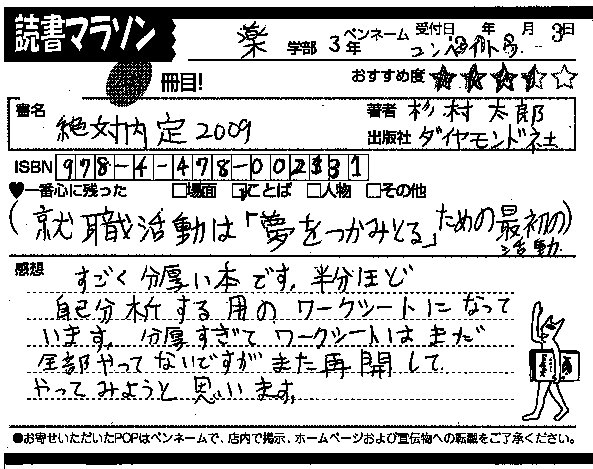 読書マラソン
薬 学部 3年 ペンネーム 受付日 年 月 3日
コンペイトウ
冊目! おすすめ度 ★★★★☆
書名 絶対内定2009
著者 杉村太郎
出版社 ダイヤモンド社
ISBN 978-4-478-002331
♥一番心に残った □場面 ☑ことば □人物 □その他
(就職活動は「夢をつかみとる」ための最初の活動)
感想 すごく分厚い本です。半分ほど
自己分析する用のワークシートになって
います。分厚すぎてワークシートはまだ
全部やってないですがまた再開して
やってみようと思います。
●お寄せいただいたPOPはペンネームで、店内で掲示、ホームページおよび宣伝物への転載をご了承ください。